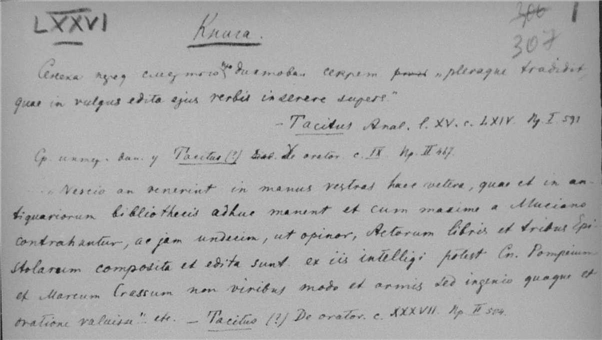 LXXVI
307
Книга.
Сенека перед смертью диктовал секрет „pleraque tradidit,
quae in vulgus edita ejus verbis invertere supers."
— Tacitus Anal. l. XV. c. LXIV. Пр. I 591
Ср. интер. дан. у Tacitus (?) Dial. De orator. c. IX. Пр. II 467.
„Nescio an venerint in manus vestras haec vetera, quae et in an-
tiquariorum bibliothecis adhuc manent et cum maxime a Muciano
contrahuntur, ac jam undecim, ut opinor, Actorum libris et tribus Epi
stolarum composita et edita sunt. ex iis intelligi potest Cn. Pompeium
et Marcum Cressum non viribus modo et armis sed ingenio quoque et
oratione valuisse" etc. — Tacitus (?) De orator. c. XXXVII. Пр. II 504.